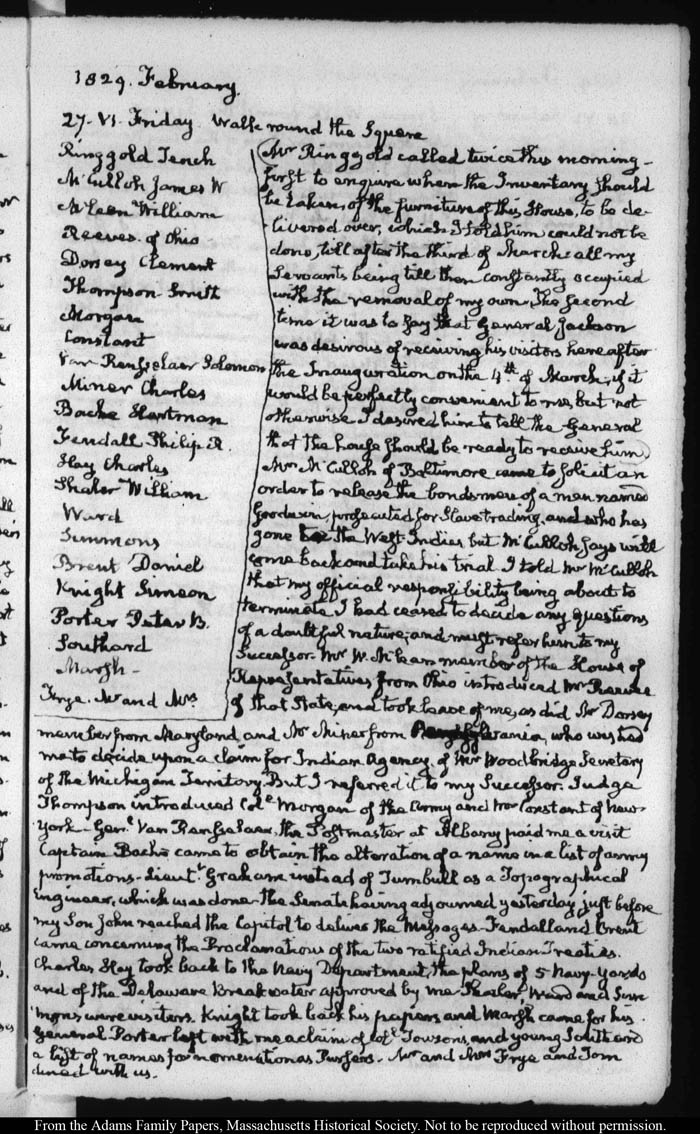 1829. February.
27. VI. Friday. Walk round the Square
Ringgold Tench
McCulloh James W
McLean William
Reeves. of Ohio
Dorsey Clement
Thompson Smith
Morgan
Constant
Van Rensselaer Solomon
Miner Charles
Bache Hartman
Fendall Philip R.
Hay Charles
Shaler William
Ward
Simmons
Brent Daniel
Knight Simeon
Porter Peter B.
Southard
Marsh –
Frye. Mr and Mrs
Mr Ringgold called twice this morning –
first to enquire when the Inventary should
be taken, of the furniture of this House, to be de-
-livered over, which I told him could not be
done, till after the third of March: all my
Servants being till then constantly occupied
with the removal of my own. The second
time it was to say that General Jackson
was desirous of receiving his visitors here after
the Inauguration on the 4th of March, if it
would be perfectly convenient to me, but not
otherwise. I desired him to tell the General
that the house should be ready to receive him.
Mr McCulloh of Baltimore came to solicit an
order to release the bondsmen of a man named
Goodwin, prosecuted for Slave trading, and who has
gone to the West Indies, but McCulloh says will
come back and take his trial. I told Mr McCulloh
that my official responsibility being about to
terminate, I had ceased to decide any questions
of a doubtful nature; and must refer him to my
Successor. Mr W. McLean member of the House of
Representatives, from Ohio introduced Mr Reeves
of that State, and took leave of me, as did Mr Dorsey
member from Maryland and Mr Miner from Pennsylvania, who wished
me to decide upon a claim for Indian Agency, of Mr Woodbridge Secretary
of the Michigan Territory. But I referred it to my Successor. Judge
Thompson introduced Coll Morgan of the Army and Mr Constant of New-
York. Genl Van Rensselaer, the Postmaster at Albany paid me a visit
Captain Bache came to obtain the alteration of a name in a list of army
promotions. Lieutt Graham instead of Turnbull as a Topographical
Engineer, which was done. The Senate having adjourned yesterday, just before
my Son John reached the Capitol to deliver the Messages. Fendall and Brent
came concerning the Proclamations of the two ratified Indian Treaties.
Charles Hay took back to the Navy Department, the plans of 5 Navy-Yards
and of the Delaware Breakwater approved by me. Shaler, Ward and Sim
mons, were visitors. Knight took back his papers, and Marsh came for his.
General Porter left with me a claim of Coll Towson's, and young Southard
a list of names for nomination as Pursers. Mr and Mrs Frye and Tom
dined with us.
From the Adams Family Papers, Massachusetts Historical Society. Not to be reproduced without permission.